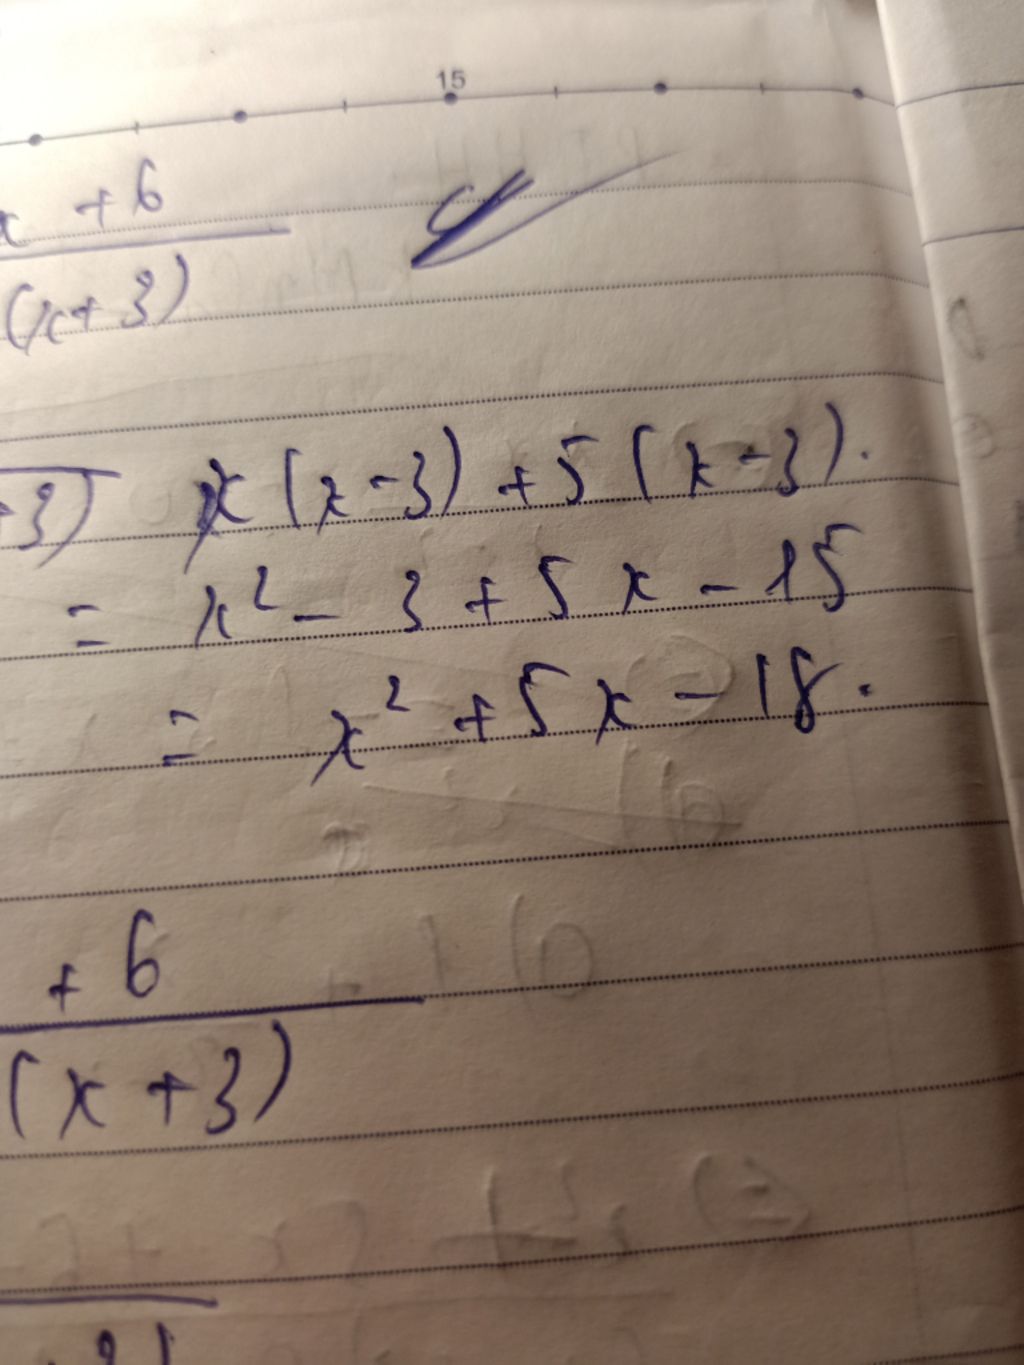 15
x + 6
(x + 3)
3) x(x - 3) + 5(x - 3).
= x² - 3 + 5x - 15
= x² + 5x - 18.
+ 6
(x + 3)